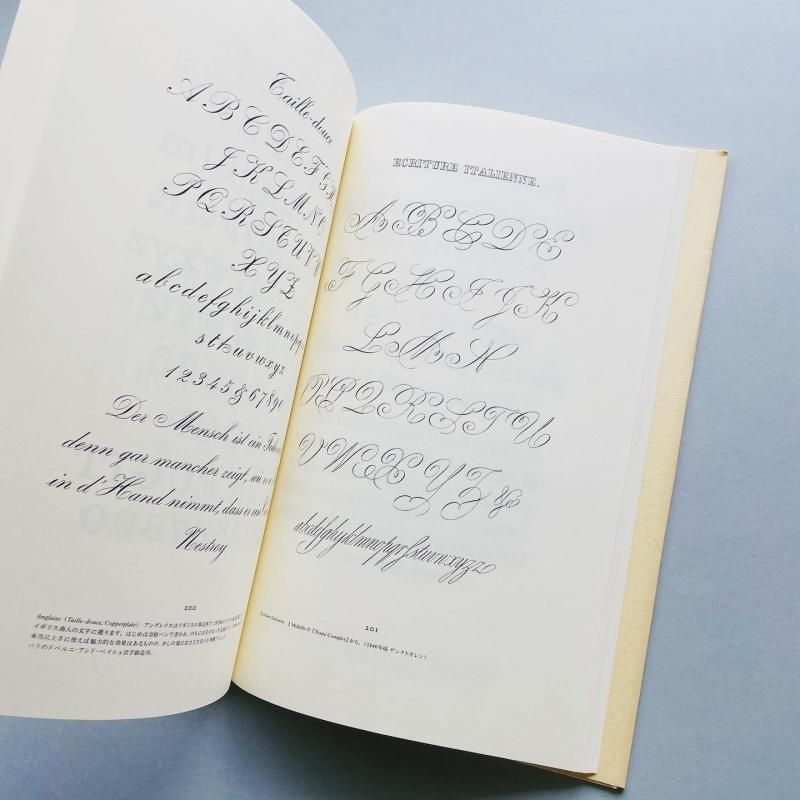 Taille-douce
A B C D E F G H
J K L M N O
P Q R S T U V
X Y Z
a b c d e f g h i j k l m n o p q
s t u v w x y z
1 2 3 4 5 & 6 7 8 9 0
Der Mensch ist ein
denn gar mancher zeigt,
in d'Hand nimmt, dass es
Nestroy
200
Anglaise (Taille-douce, Copperplate) アングレイスはイギリスの
イギリス商人の文字に遡ります。はじめは羽根ペンで書かれ、
本当に上手に使えば魅力的な効果はあるものの、
パリのドベルニ・アンド・ペイニョ活字鋳造所。
ECRITURE ITALIENNE.
A B C D E
F G H I J K
L M N
O P Q R S T U
V W X Y Z &
abcdefghijklmnopqrſstuvwxyz
201
Ecriture italienne J. Midolleの『から、(1840年頃 ザンクトガレン)